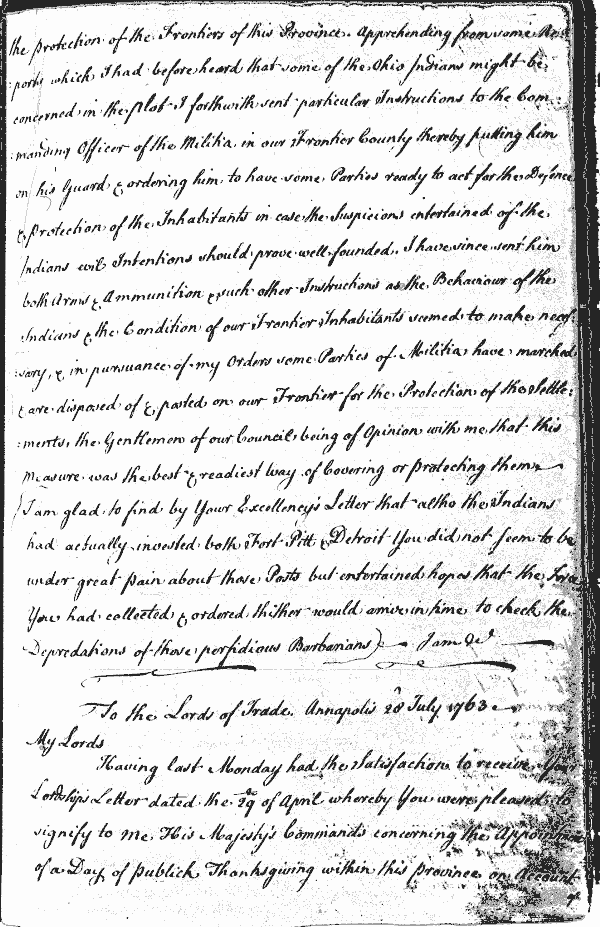 the Protection of the Frontiers of this Province. Apprehending from some Re=
ports which I had before heard that some of the Ohio Indians might be
concerned in the Plot I forthwith sent particular Instructions to the Com
:manding Officer of the Militia in our Frontier County thereby putting him
on his Guard & ordering him to have some Parties ready to act for the Defence
& Protection of the Inhabitants in case the Suspicions entertained of the
Indians evil Intentions should prove well founded. I have since sent him
both Arms & Ammunition & such other Instructions as the Behaviour of the
Indians & the Condition of our Frontier Inhabitants seemed to make neces=
sary, & in pursuance of my Orders some Parties of Militia have marched
& are disposed of & posted on our Frontier for the Protection of the Settle=
:ments, the Gentlemen of our Council being of Opinion with me that this
Measure was the best & readiest Way of Covering or protecting them
I am glad to find by Your Excellency's Letter that altho the Indians
had actually invested both Fort Pitt & Detroit You did not seem to be
under great pain about those Posts but entertained hopes that the Force
You had collected & ordered thither would arrive in time to check the
Depredations of those perfidious Barbarians) I am &c
To the Lords of Trade. Annapolis 28 July 1763
My Lords
Having last Monday had the Satisfaction to receive Your
Lordships Letter dated the 29 of April whereby You were pleased to
signify to me His Majesty's Commands concerning the Appointment
of a Day of publick Thanksgiving within this province on Account
of